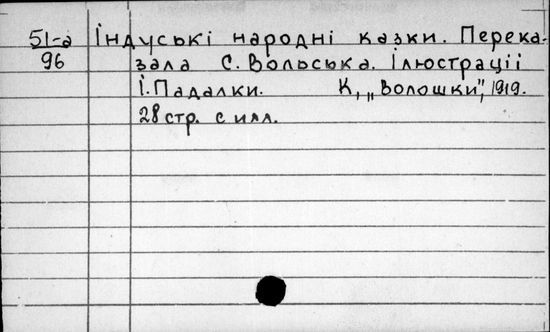 51-а Індуські народні казки. Перека-
96 зала С. Вольська. Ілюстраціі
І. Падалки. К., „Волошки", 1919.
28 стр. с илл.